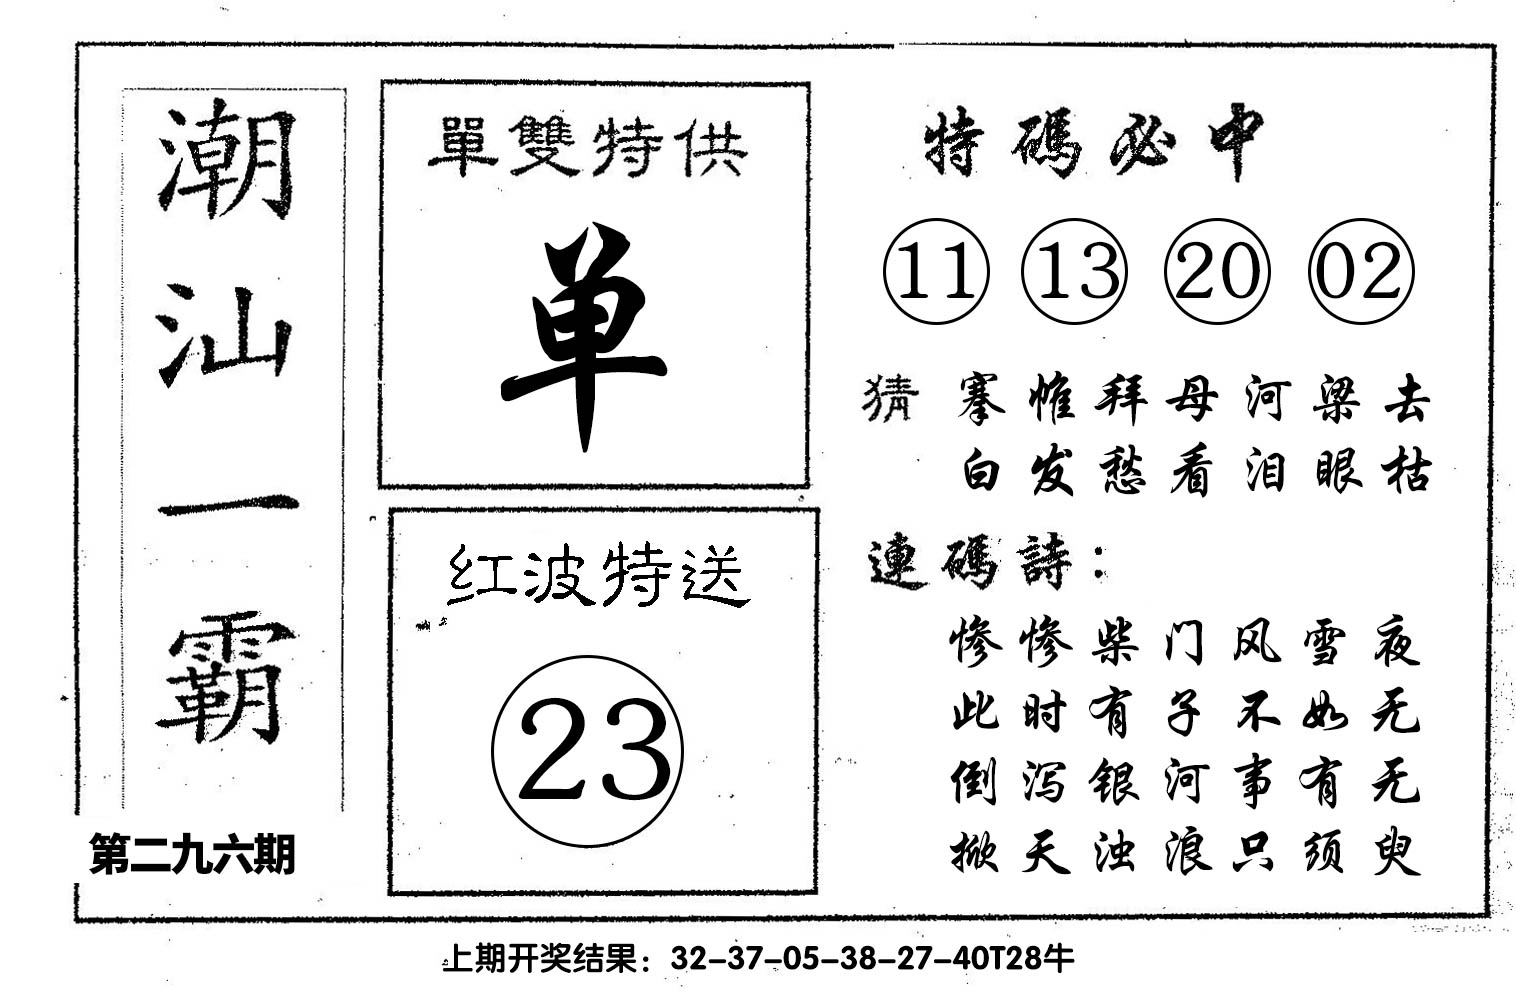 潮汕一霸
第二九六期
單雙特供
单
红波特送
23
特碼必中
11 13 20 02
猜 搴帷拜母河梁去
白发愁看泪眼枯
連碼詩：
惨惨柴门风雪夜
此时有子不如无
倒泻银河事有无
掀天浊浪只须臾
上期开奖结果：32-37-05-38-27-40T28牛